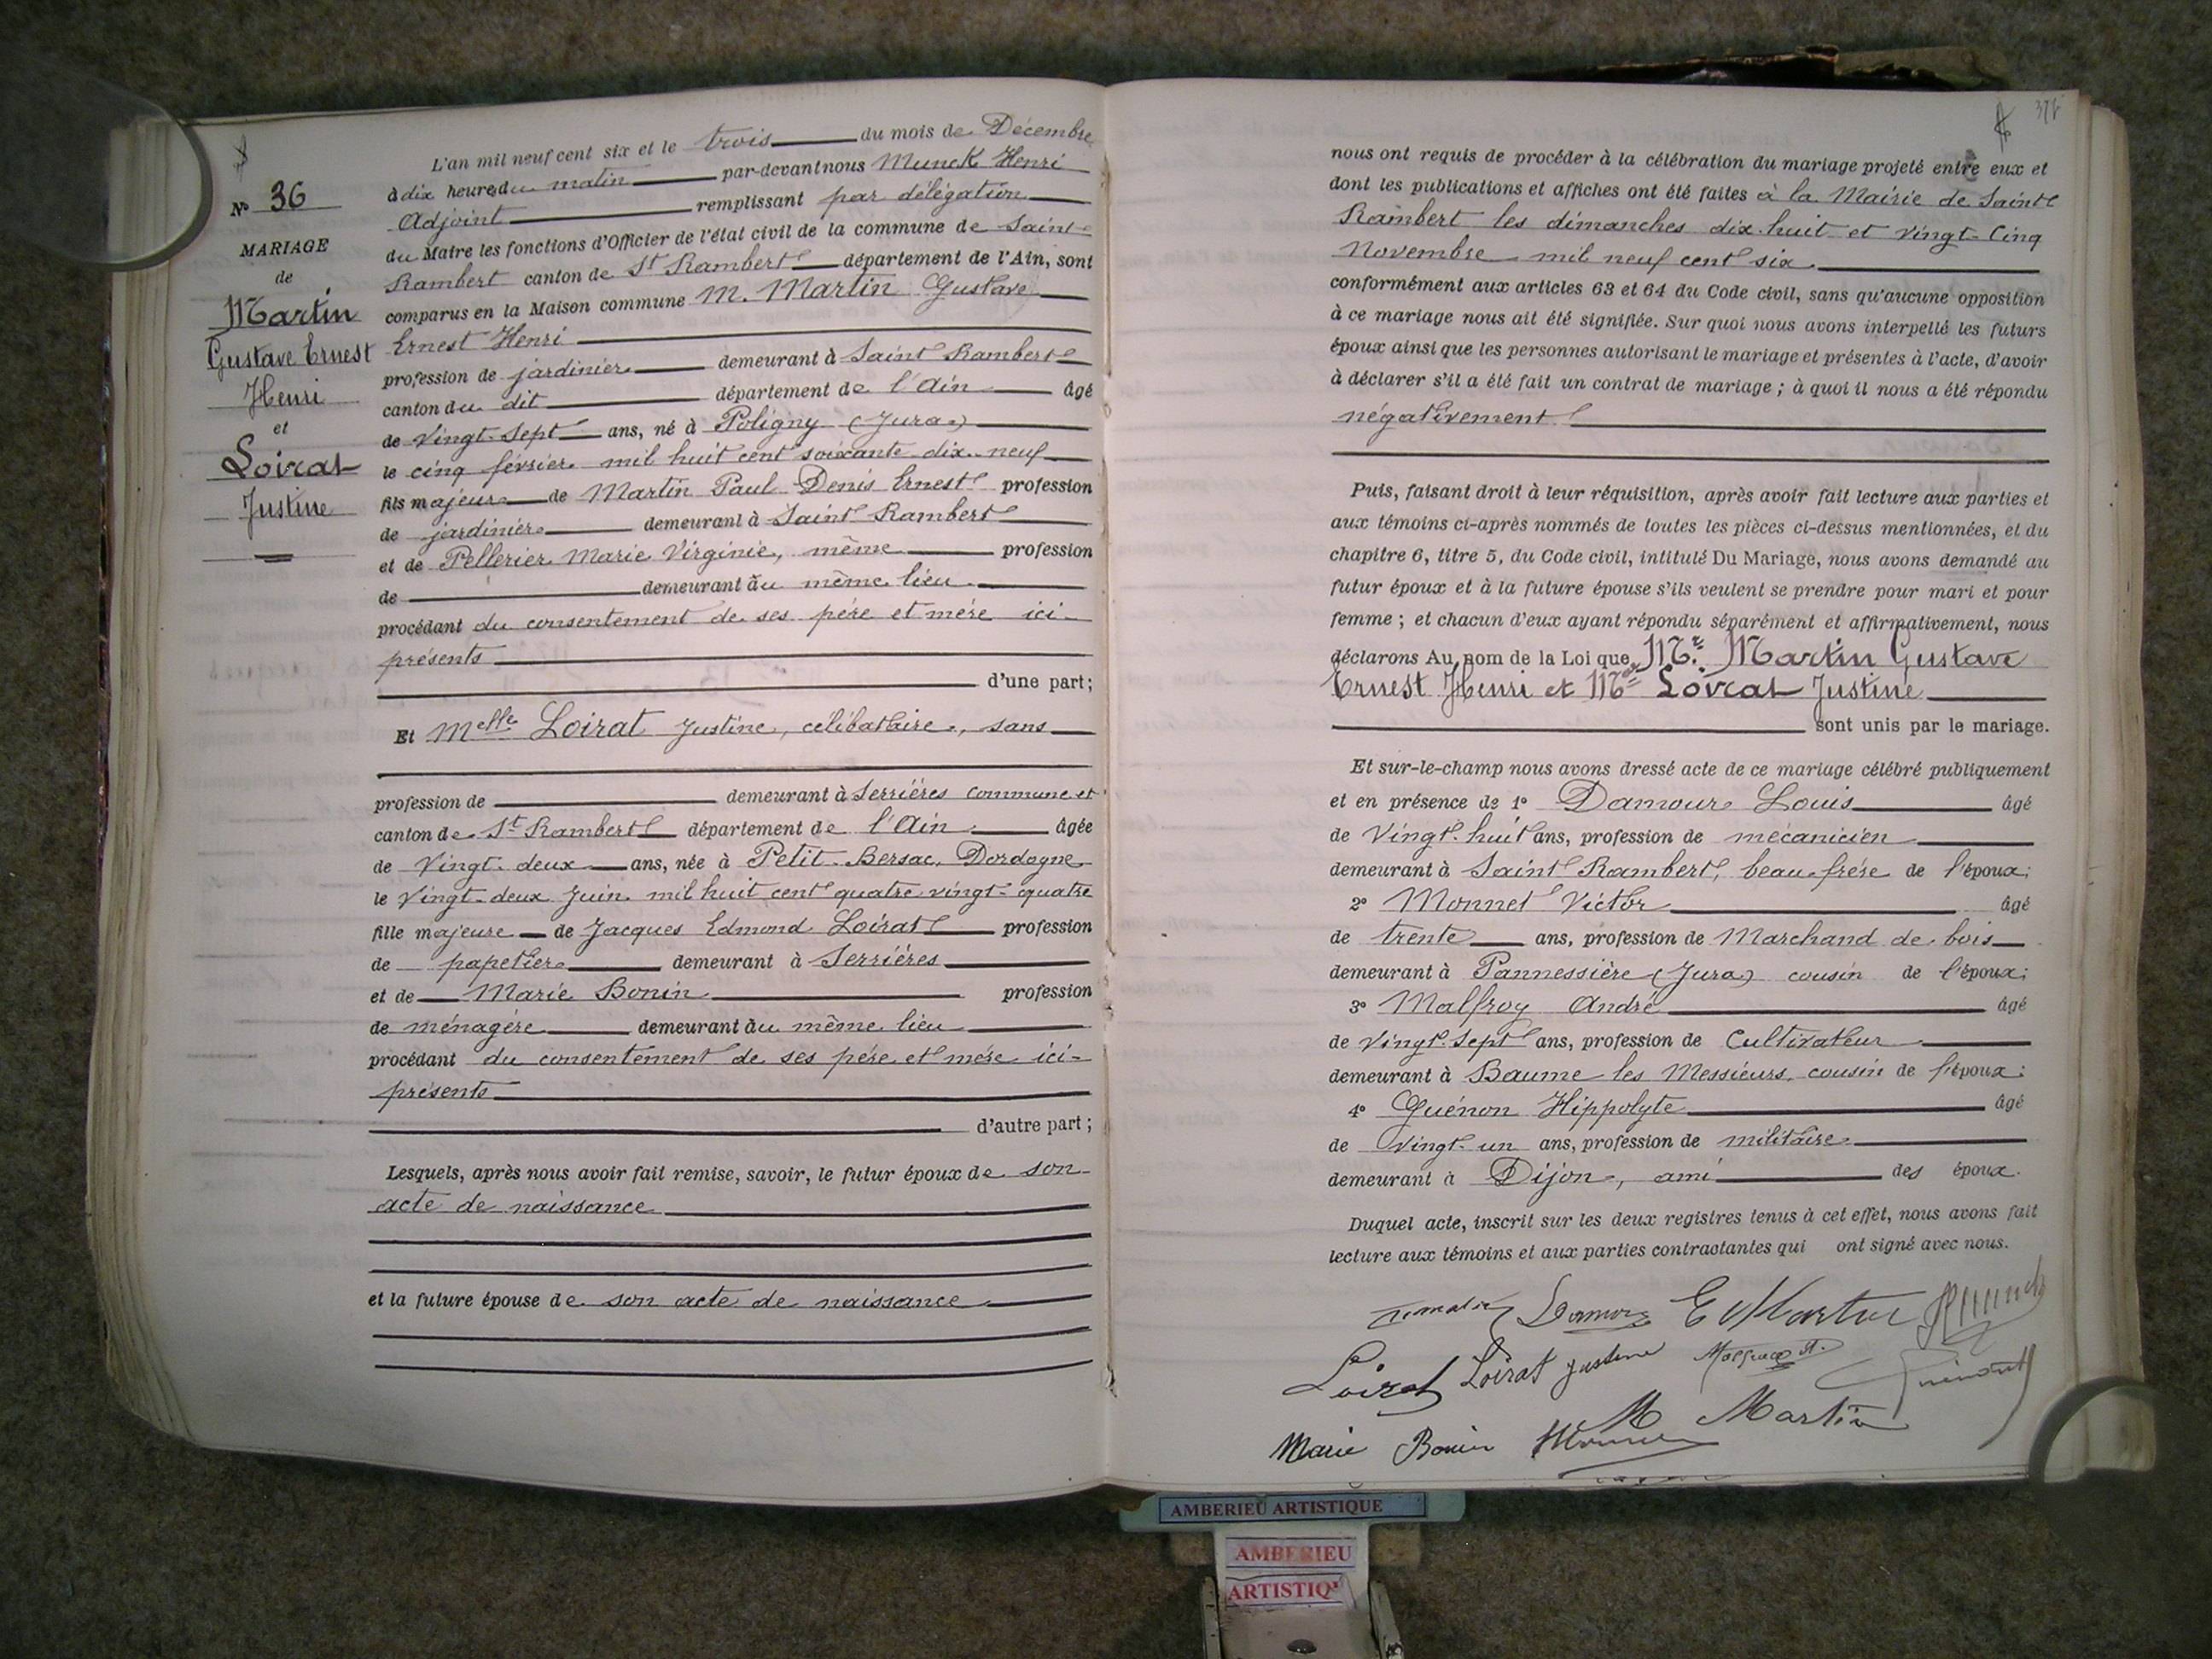 N° 36
MARIAGE
de
Martin
Gustave Ernest
Henri
et
Loirat
Justine
L'an mil neuf cent six et le trois du mois de Décembre
à dix heures du matin par-devant nous Munck Henri
Adjoint remplissant par délégation
du Maire les fonctions d'Officier de l'état civil de la commune de Saint-
Rambert canton de St Rambert département de l'Ain, sont
comparus en la Maison commune M. Martin Gustave
Ernest Henri
profession de jardinier demeurant à Saint Rambert
canton du dit département de l'Ain âgé
de vingt-sept ans, né à Poligny (Jura)
le cinq février mil huit cent soixante dix-neuf
fils majeur de Martin Paul Denis Ernest profession
de jardinier demeurant à Saint Rambert
et de Pellerier Marie Virginie, même profession
de demeurant au même lieu
procédant du consentement de ses père et mère ici-
présents
d'une part;
Et Melle Loirat Justine, célibataire, sans
profession de demeurant à Serrières commune et
canton de St Rambert département de l'Ain âgée
de vingt-deux ans, née à Petit-Bersac, Dordogne
le vingt-deux Juin mil huit cent quatre vingt-quatre
fille majeure de Jacques Edmond Loirat profession
de papetier demeurant à Serrières
et de Marie Bonin profession
de ménagère demeurant au même lieu
procédant du consentement de ses père et mère ici-
présents
d'autre part;
Lesquels, après nous avoir fait remise, savoir, le futur époux de son
acte de naissance
et la future épouse de son acte de naissance
378
nous ont requis de procéder à la célébration du mariage projeté entre eux et
dont les publications et affiches ont été faites à la Mairie de Saint
Rambert les dimanches dix-huit et vingt-cinq
Novembre mil neuf cent six
conformément aux articles 63 et 64 du Code civil, sans qu'aucune opposition
à ce mariage nous ait été signifiée. Sur quoi nous avons interpellé les futurs
époux ainsi que les personnes autorisant le mariage et présentes à l'acte, d'avoir
à déclarer s'il a été fait un contrat de mariage; à quoi il nous a été répondu
négativement
Puis, faisant droit à leur réquisition, après avoir fait lecture aux parties et
aux témoins ci-après nommés de toutes les pièces ci-dessus mentionnées, et du
chapitre 6, titre 5, du Code civil, intitulé Du Mariage, nous avons demandé au
futur époux et à la future épouse s'ils veulent se prendre pour mari et pour
femme; et chacun d'eux ayant répondu séparément et affirmativement, nous
déclarons Au nom de la Loi que Mr. Martin Gustave
Ernest Henri et Melle Loirat Justine
sont unis par le mariage.
Et sur-le-champ nous avons dressé acte de ce mariage célébré publiquement
et en présence de 1° Damour Louis âgé
de vingt-huit ans, profession de mécanicien
demeurant à Saint Rambert, beau-frère de l'époux;
2° Monnet Victor âgé
de trente ans, profession de Marchand de bois
demeurant à Pannessière (Jura) cousin de l'époux;
3° Malfroy André âgé
de vingt-sept ans, profession de Cultivateur
demeurant à Baume les Messieurs, cousin de l'époux;
4° Guénon Hippolyte âgé
de vingt-un ans, profession de militaire
demeurant à Dijon, ami des époux.
Duquel acte, inscrit sur les deux registres tenus à cet effet, nous avons fait
lecture aux témoins et aux parties contractantes qui ont signé avec nous.
Damour E Martin
Loirat Loirat Justine
M Martin
Marie Bonin
AMBERIEU ARTISTIQUE
AMBERIEU
ARTISTIQ